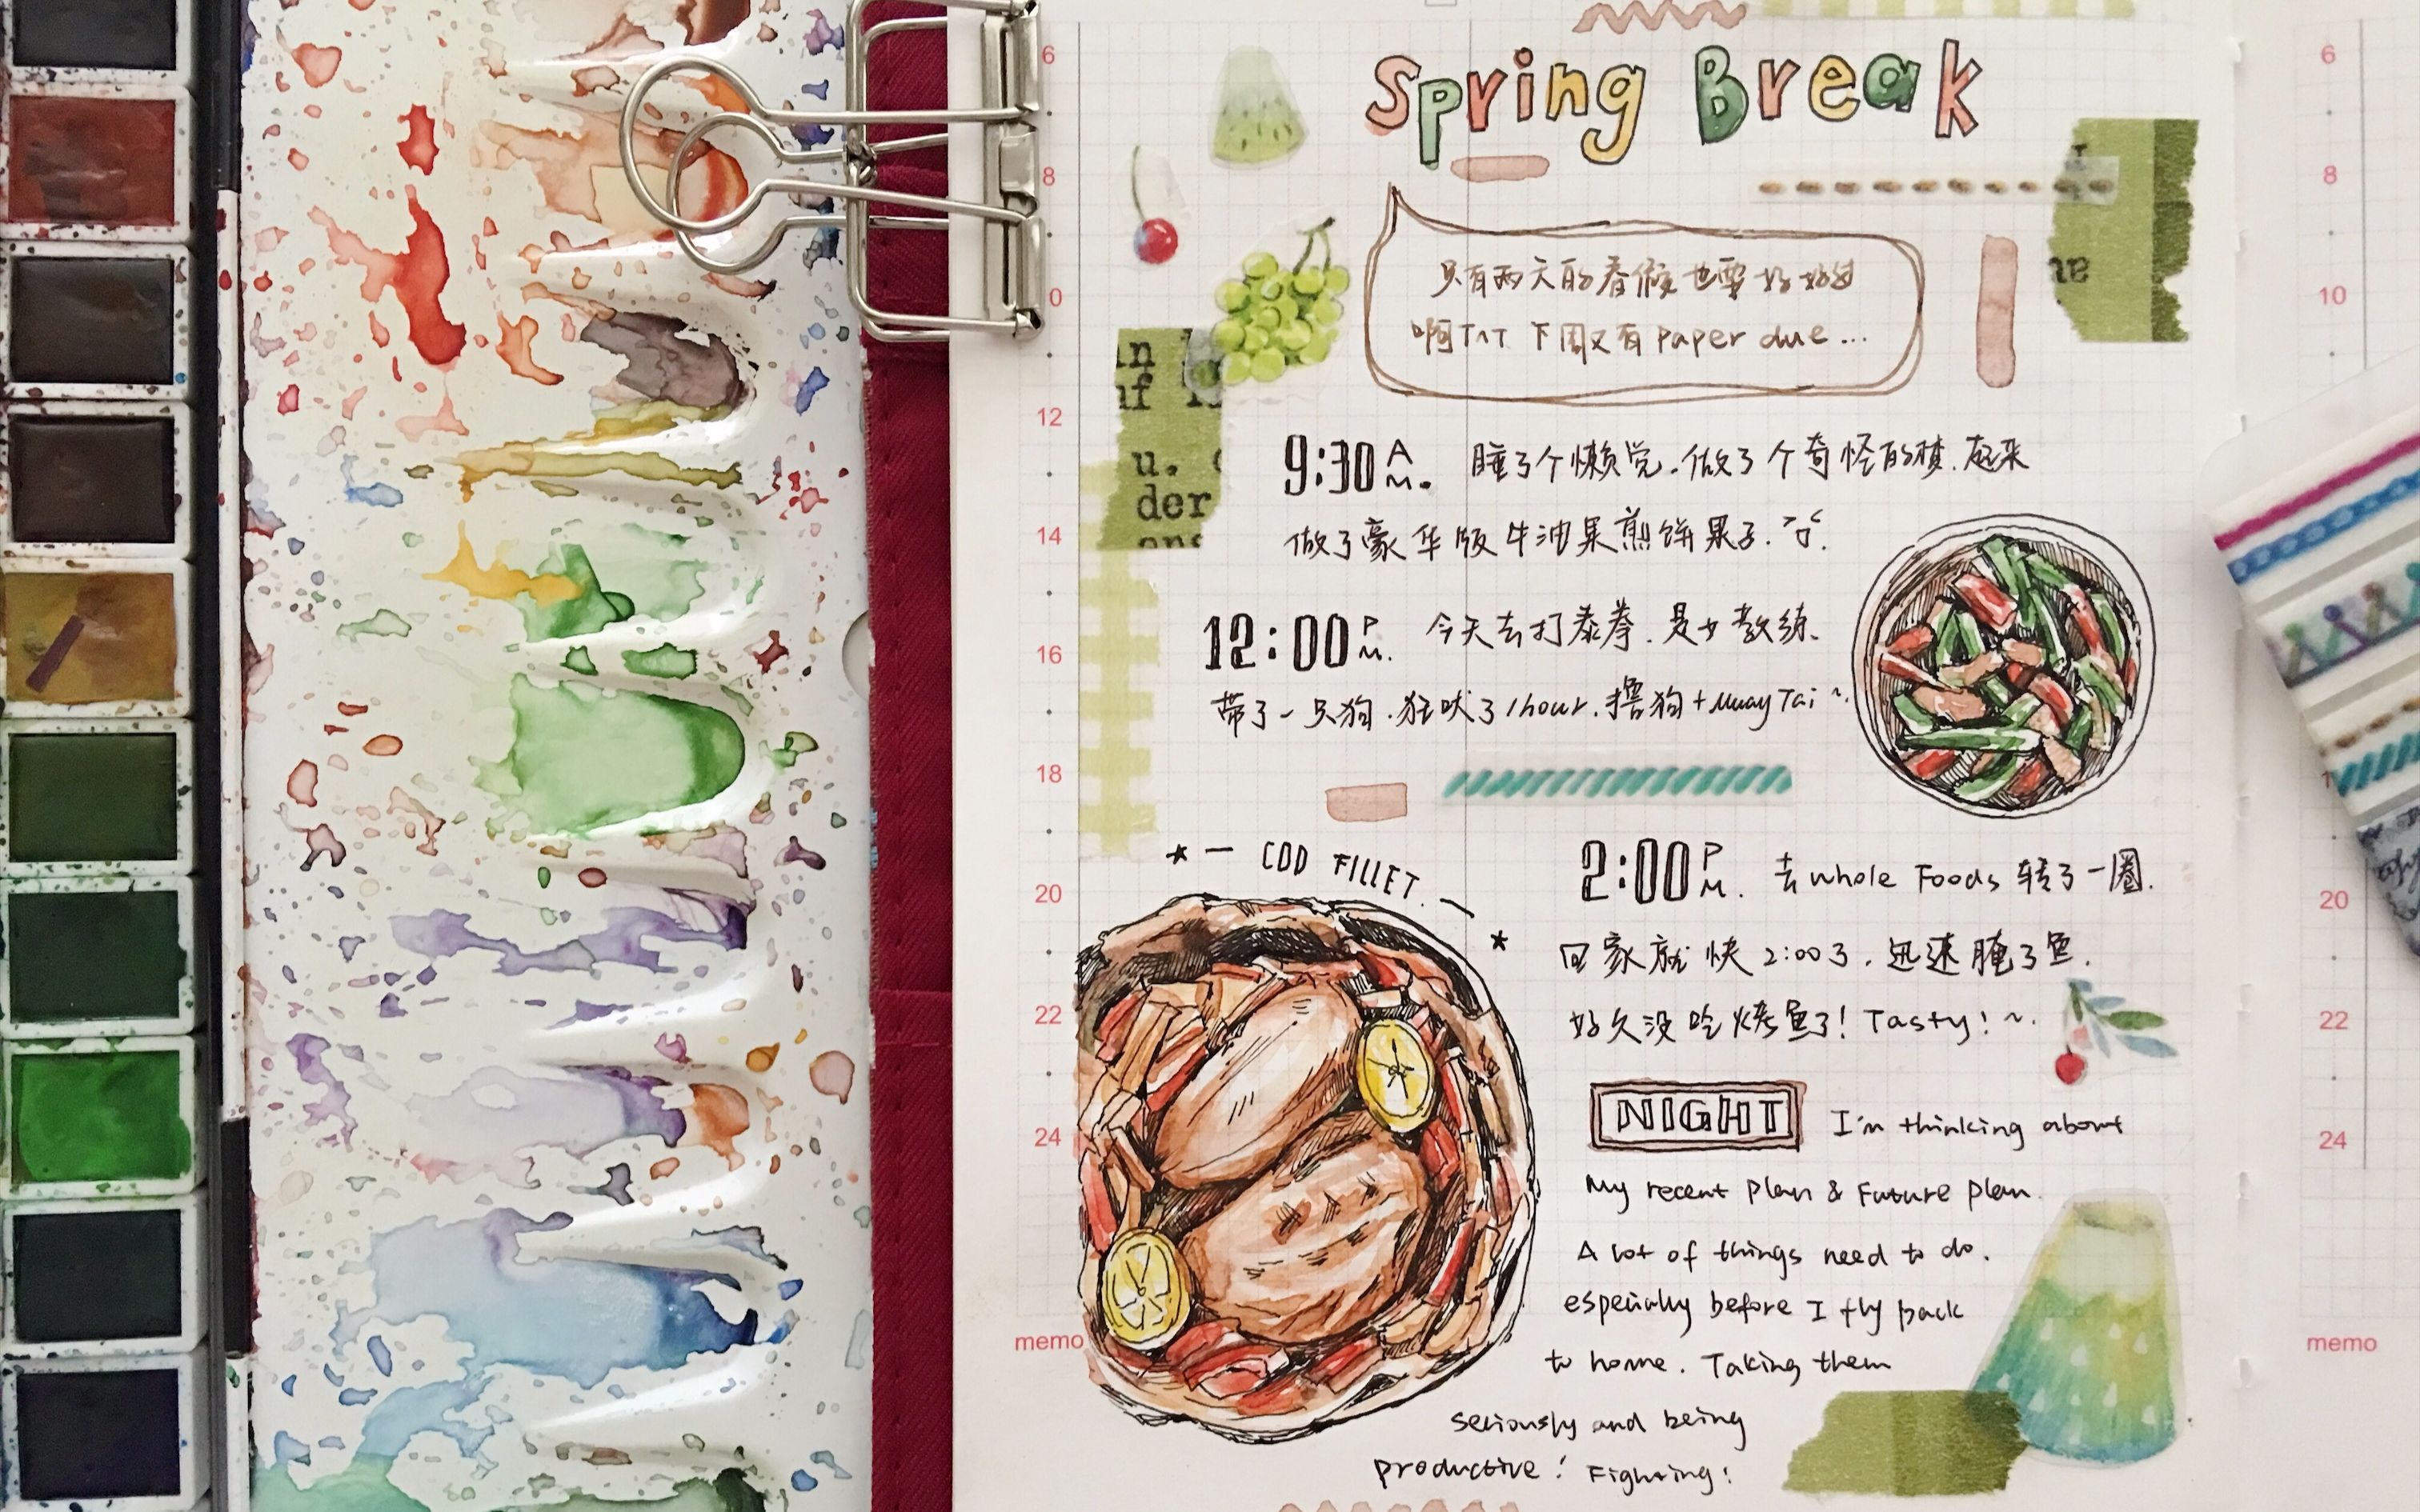 Spring Break
只有两天的春假也要好好过
啊TAT 下周又有 paper due...
9:30 A.M. 睡了个懒觉.做了个奇怪的梦.起来
做了豪华版牛油果煎饼果子.
12:00 P.M. 今天去打泰拳.是女教练.
带了一只狗.狂吠了1hour.撸狗+Muay Tai~.
* — COD FILLET. — *
2:00 P.M. 去whole Foods 转了一圈.
回家就快2:00了.迅速腌了鱼.
好久没吃烤鱼了! Tasty! ~.
NIGHT I'm thinking about
My recent plan & Future plan.
A lot of things need to do.
especially before I fly back
to home. Taking them
seriously and being
productive! Fighting!
in
u.
der
ens
6
8
0
12
14
16
18
20
22
24
memo
6
8
10
20
22
24
memo